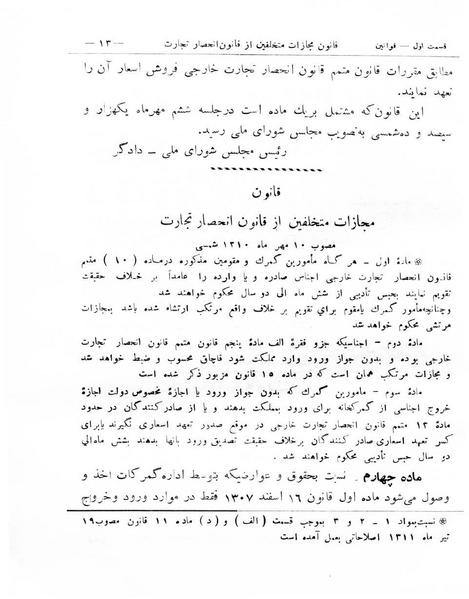 قسمت اول — قوانین    قانون مجازات متخلفین از قانون انحصار تجارت    — ۱۳ —
مطابق مقررات قانون متمم قانون انحصار تجارت خارجی فروش اسعار آن را
تعهد نمایند.
این قانون که مشتمل بریك ماده است درجلسه ششم مهرماه یکهزار و
سیصد و ده‌شمسی به‌تصویب مجلس شورای ملی رسید.
رئیس مجلس شورای ملی ـ دادگر
قانون
مجازات متخلفین از قانون انحصار تجارت
مصوب ۱۰ مهر ماه ۱۳۱۰ شمسی
* مادهٔ اول - هر گاه مأمورین گمرك و مقومین مذکوره درماده (۱۰) متمم
قانون انحصار تجارت خارجی اجناس صادره و یا وارده را عامداً بر خلاف حقیقت
تقویم نمایند بحبس تأدیبی از شش ماه الی دو سال محکوم خواهند شد
وچنانچه‌مأمور گمرك یامقوم برای تقویم بر خلاف واقع مرتکب ارتشاء شده باشد بمجازات
مرتشی محکوم خواهد شد
مادهٔ دوم - اجناسیکه جزو فقرهٔ الف مادهٔ پنجم قانون متمم قانون انحصار تجارت
خارجی بوده و بدون جواز ورود وارد مملکت شود قاچاق محسوب و ضبط خواهد شد
و مجازات مرتکب همان است که در ماده ۱۵ قانون مزبور ذکر شده است
مادهٔ سوم - مامورین گمرك که بدون جواز ورود یا اجازهٔ مخصوص دولت اجازهٔ
خروج اجناسی از گمرکخانه برای ورود بمملکت بدهند و یا از صادرکنندگان در حدود
مادهٔ ۱۲ متمم قانون انحصار تجارت خارجی در موقع صدور تعهد اسعاری نگیرند یابرای
کسر تعهد اسعاری صادر کنندگان برخلاف حقیقت تصدیق ورود بآنها بدهند بشش ماه‌الی
دو سال حبس تأدیبی محکوم خواهند شد .
ماده چهارم ـ نسبت بحقوق و عوارضیکه بتوسط اداره گمرکات اخذ و
وصول می‌شود ماده اول قانون ۱۶ اسفند ۱۳۰۷ فقط در موارد ورود وخروج
* نسبت‌بمواد ۱ - ۲ و ۳ بموجب قسمت (الف) و (د) ماده ۱۱ قانون مصوب ۱۹
تیر ماه ۱۳۱۱ اصلاحاتی بعمل آمده است